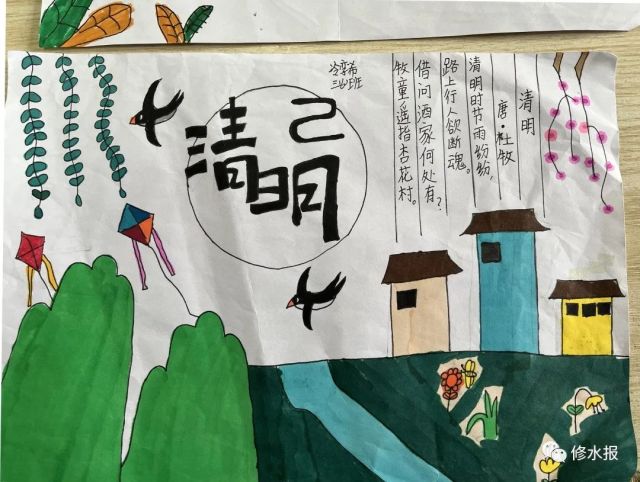 清明
己
清明
唐·杜牧
清明时节雨纷纷,
路上行人欲断魂。
借问酒家何处有?
牧童遥指杏花村。
修水报